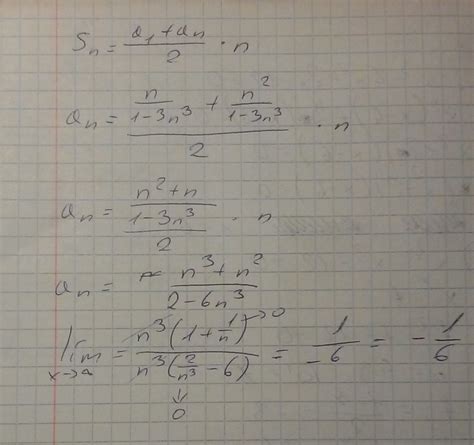 Sₙ = (a₁ + aₙ)/2 · n
aₙ = (n/(1-3n³) + n²/(1-3n³))/2 · n
aₙ = ((n²+n)/(1-3n³))/2 · n
aₙ = (n³+n²)/(2-6n³)
lim x→∞ = n³(1+1/n)→0 / n³(2/n³ - 6) = 1/-6 = -1/6
↓
0